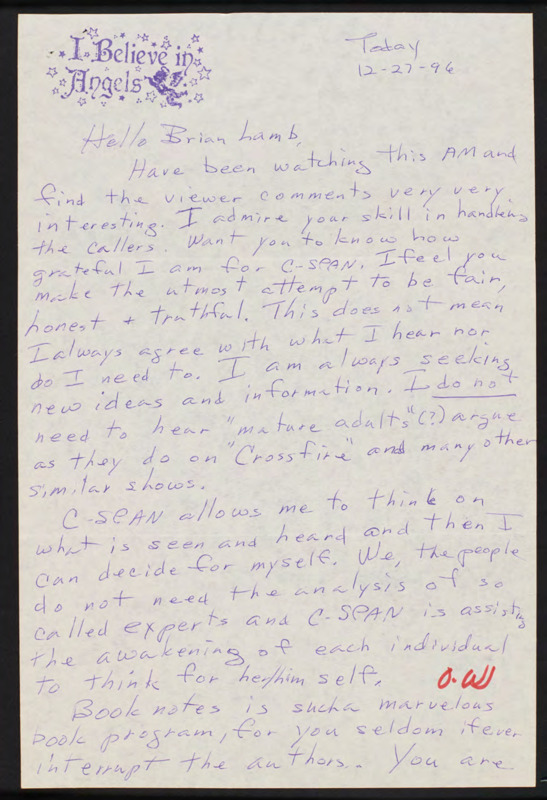 I Believe in
Angels
Today
12-27-96
Hello Brian Lamb,
Have been watching this AM and
find the viewer comments very very
interesting. I admire your skill in handling
the callers. Want you to know how
grateful I am for C-SPAN. I feel you
make the utmost attempt to be fair,
honest + truthful. This does not mean
I always agree with what I hear nor
do I need to. I am always seeking
new ideas and information. I do not
need to hear "mature adults"(?) argue
as they do on "Crossfire" and many other
similar shows.
C-SPAN allows me to think on
what is seen and heard and then I
can decide for myself. We, the people
do not need the analysis of so
called experts and C-SPAN is assisting
the awakening of each individual
to think for her/him self.
Book notes is such a marvelous
book program, for you seldom if ever
interrupt the authors. You are